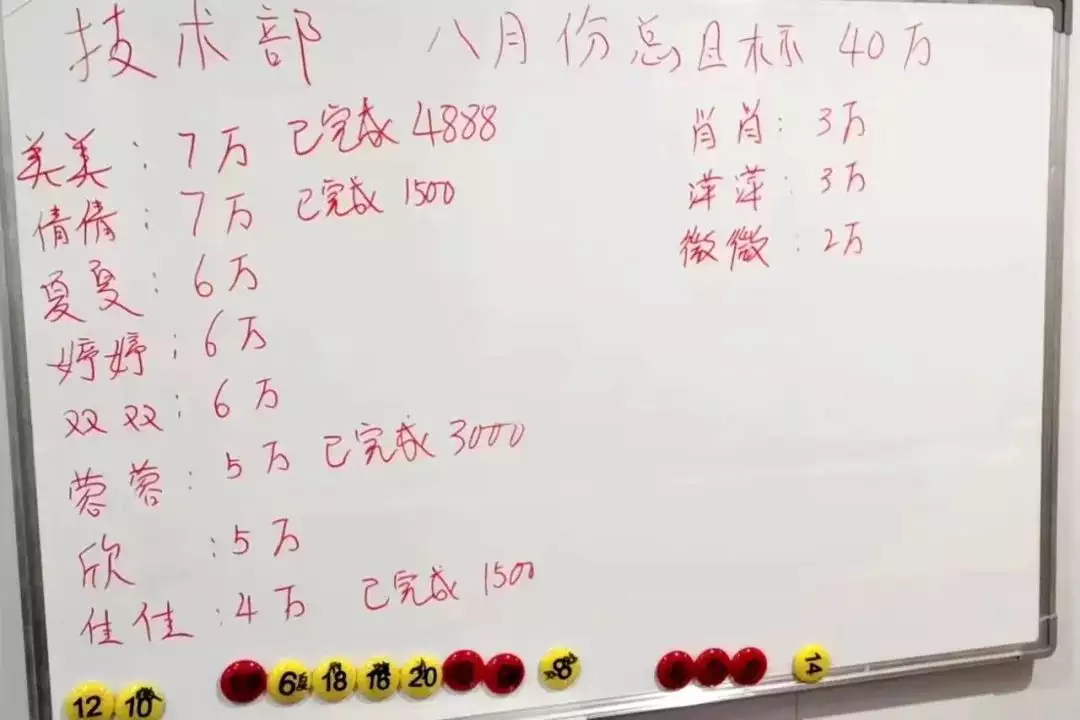 技术部 八月份总目标 40万
美美：7万 已完成 4888
倩倩：7万 已完成 1500
夏夏：6万
婷婷：6万
双双：6万
蓉蓉：5万 已完成 3000
欣：5万
佳佳：4万 已完成 1500
肖肖：3万
萍萍：3万
微微：2万
12 18 6 18 18 20 8 14